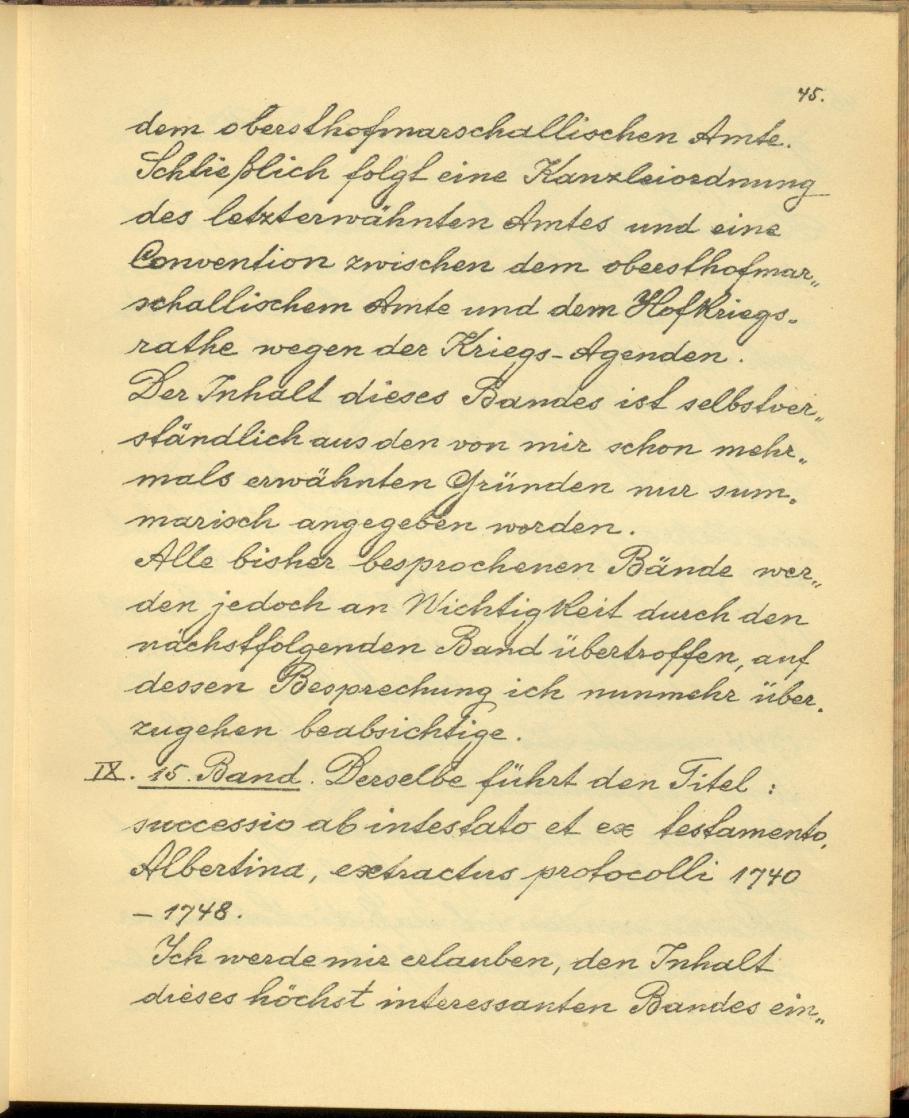 45.
dem obersthofmarschallischen Amte.
Schließlich folgt eine Kanzleiordnung
des letzterwähnten Amtes und eine
Convention zwischen dem obersthofmar„
schallischem Amte und dem Hofkriegs„
rathe wegen der Kriegs-Agenden.
Der Inhalt dieses Bandes ist selbstver„
ständlich aus den von mir schon mehr„
mals erwähnten Gründen nur sum„
marisch angegeben worden.
Alle bisher besprochenen Bände wer„
den jedoch an Wichtigkeit durch den
nächstfolgenden Band übertroffen, auf
dessen Besprechung ich nunmehr über„
zugehen beabsichtige.
IX. 15. Band. Derselbe führt den Titel :
successio ab intestato et ex testamento,
Albertina, extractus protocolli 1740
– 1748.
Ich werde mir erlauben, den Inhalt
dieses höchst interessanten Bandes ein„